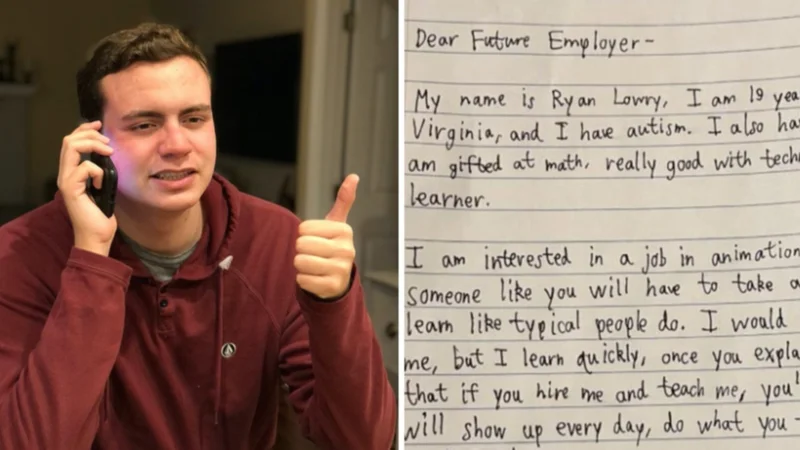 Dear Future Employer-
My name is Ryan Lowry, I am 19
Virginia, and I have autism. I also
am gifted at math, really good with
learner.
I am interested in a job in animation
someone like you will have to take
learn like typical people do. I would
me, but I learn quickly, once you
that if you hire me and teach me,
will show up every day, do what you